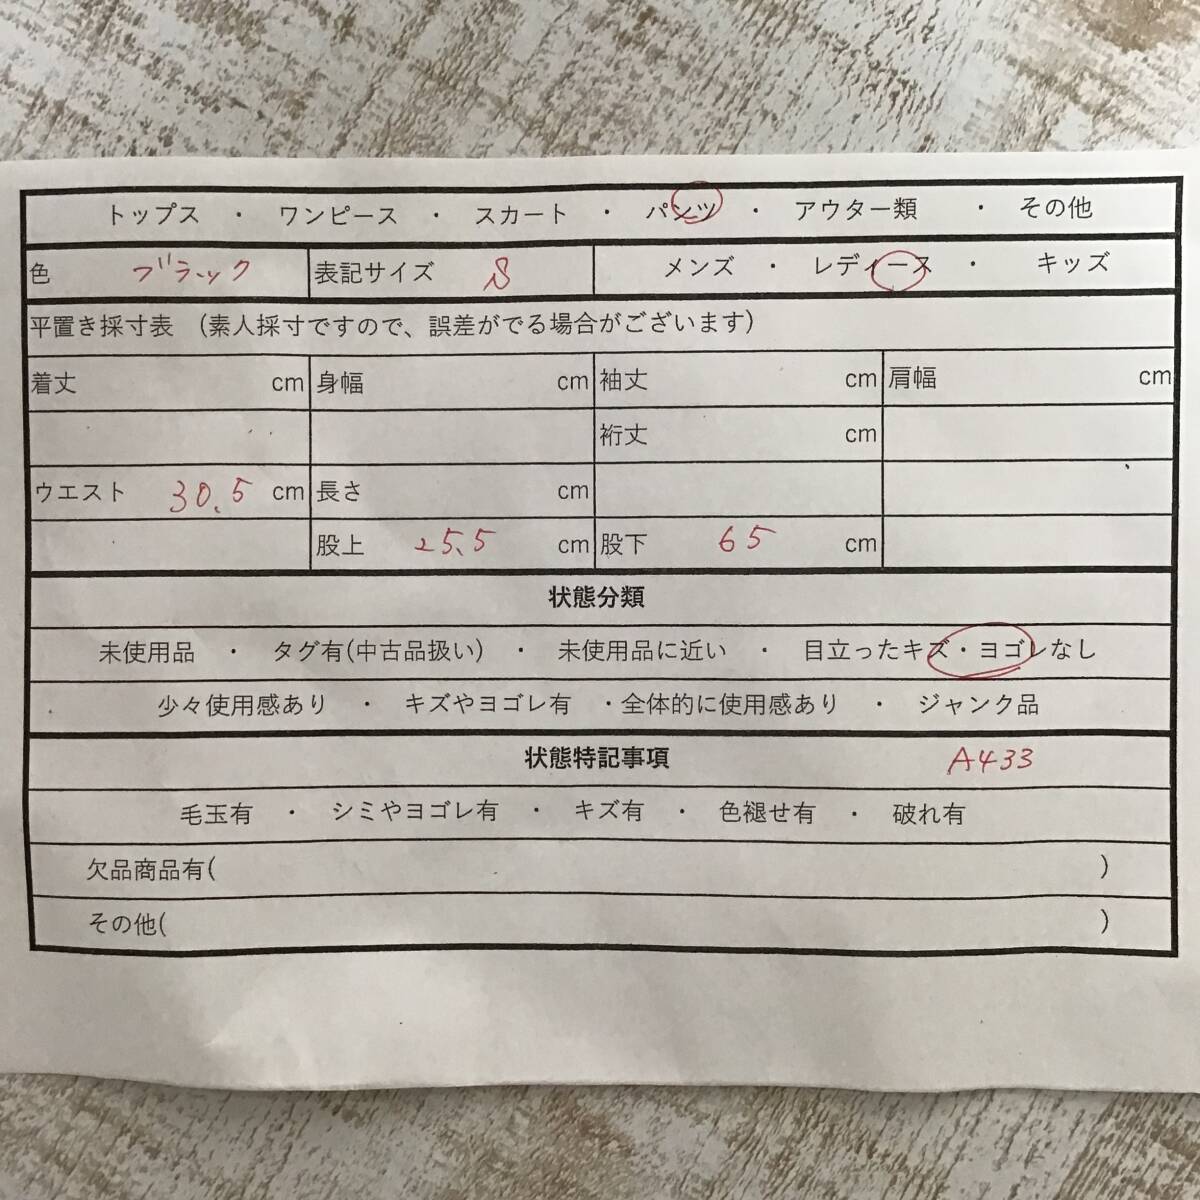 トップス ・ ワンピース ・ スカート ・ パンツ ・ アウター類 ・ その他
色 ブラック 表記サイズ S メンズ ・ レディース ・ キッズ
平置き採寸表 (素人採寸ですので、誤差がでる場合がございます)
着丈 cm 身幅 cm 袖丈 cm 肩幅 cm
裄丈 cm
ウエスト 30.5 cm 長さ cm
股上 25.5 cm 股下 65 cm
状態分類
未使用品 ・ タグ有(中古品扱い) ・ 未使用品に近い ・ 目立ったキズ・ヨゴレなし
少々使用感あり ・ キズやヨゴレ有 ・全体的に使用感あり ・ ジャンク品
状態特記事項 A433
毛玉有 ・ シミやヨゴレ有 ・ キズ有 ・ 色褪せ有 ・ 破れ有
欠品商品有( )
その他( )